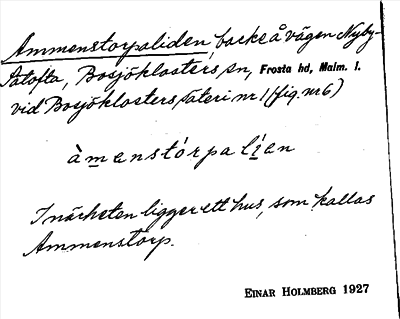 Ammenstorpaliden, backe å vägen Nyby-
Satofta, Bosjöklosters sn, Frosta hd, Malm. l.
vid Bosjöklosters Säteri nr 1 (fig. nr 6)
àmenstórpalíen
I närheten ligger ett hus, som kallas
Ammenstorp.
EINAR HOLMBERG 1927